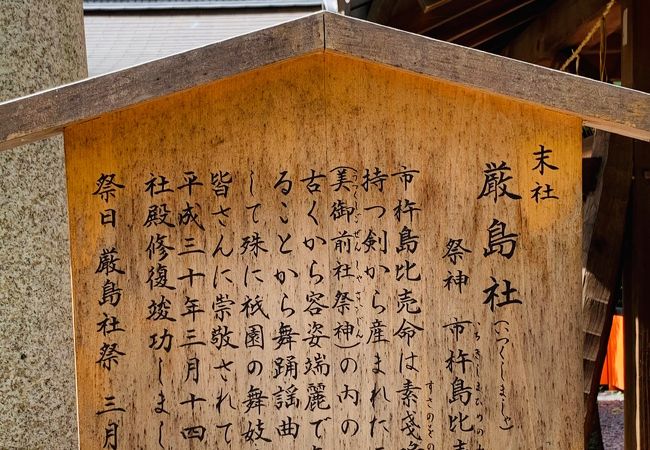 末社
厳島社(いつくしましゃ)
祭神 市杵島比売
いちきしまひめの
市杵島比売命は素戔嗚
すさのおの
持つ剣から産まれた三
(美御前社祭神)の内の
うつくしごぜんしゃさいじん
古くから容姿端麗で
ることから舞踊謡曲
して殊に祇園の舞妓
皆さんに崇敬されて
平成三十年三月十四
社殿修復竣功しまし
祭日 厳島社祭 三月